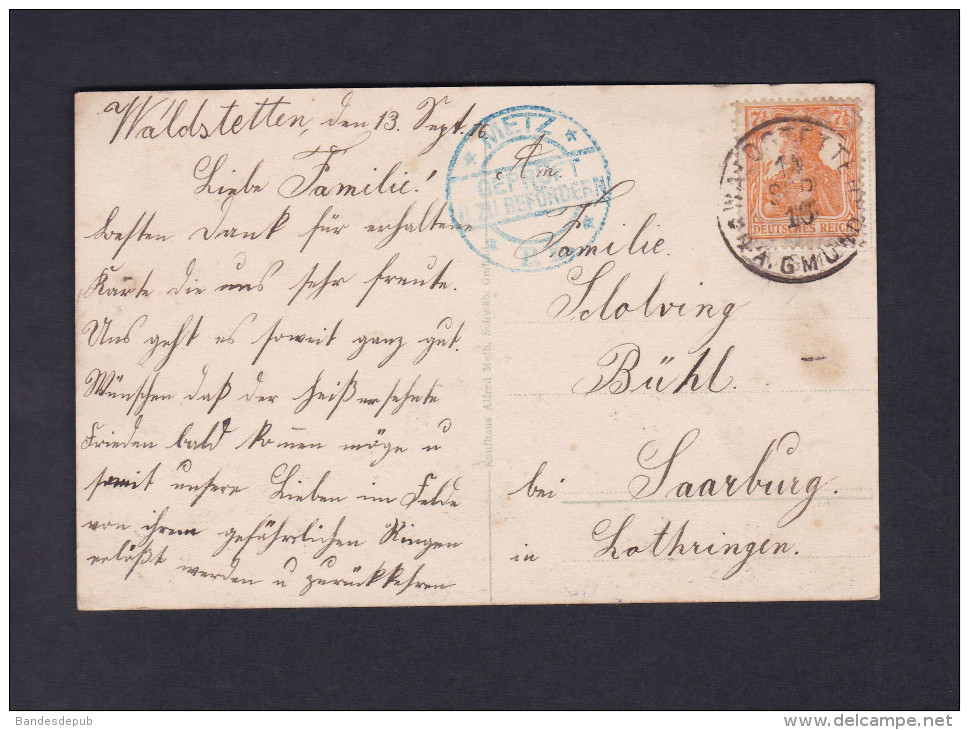 Waldstetten, den 13. Sept. 16
Liebe Familie!
besten Dank für erhaltene
Karte die uns sehr freute.
Uns geht es soweit ganz gut.
Wünschen daß der heiß ersehnte
Frieden bald kommen möge u
somit unsere Lieben im Felde
von ihrem gefährlichen Ringen
erlößt werden u zurückkehren
METZ
GEPRÜFT
U. ZU BEFÖRDERN
P.K.
Kaufhaus Alfred Meth, Schwäb. Gmünd
An
Familie
Scholving
Bühl.
bei Saarburg.
in Lothringen.
7½ 7½
DEUTSCHES REICH
WALDSTETTEN
O.A. GMÜND
Bandesdepub
www.delcampe.net